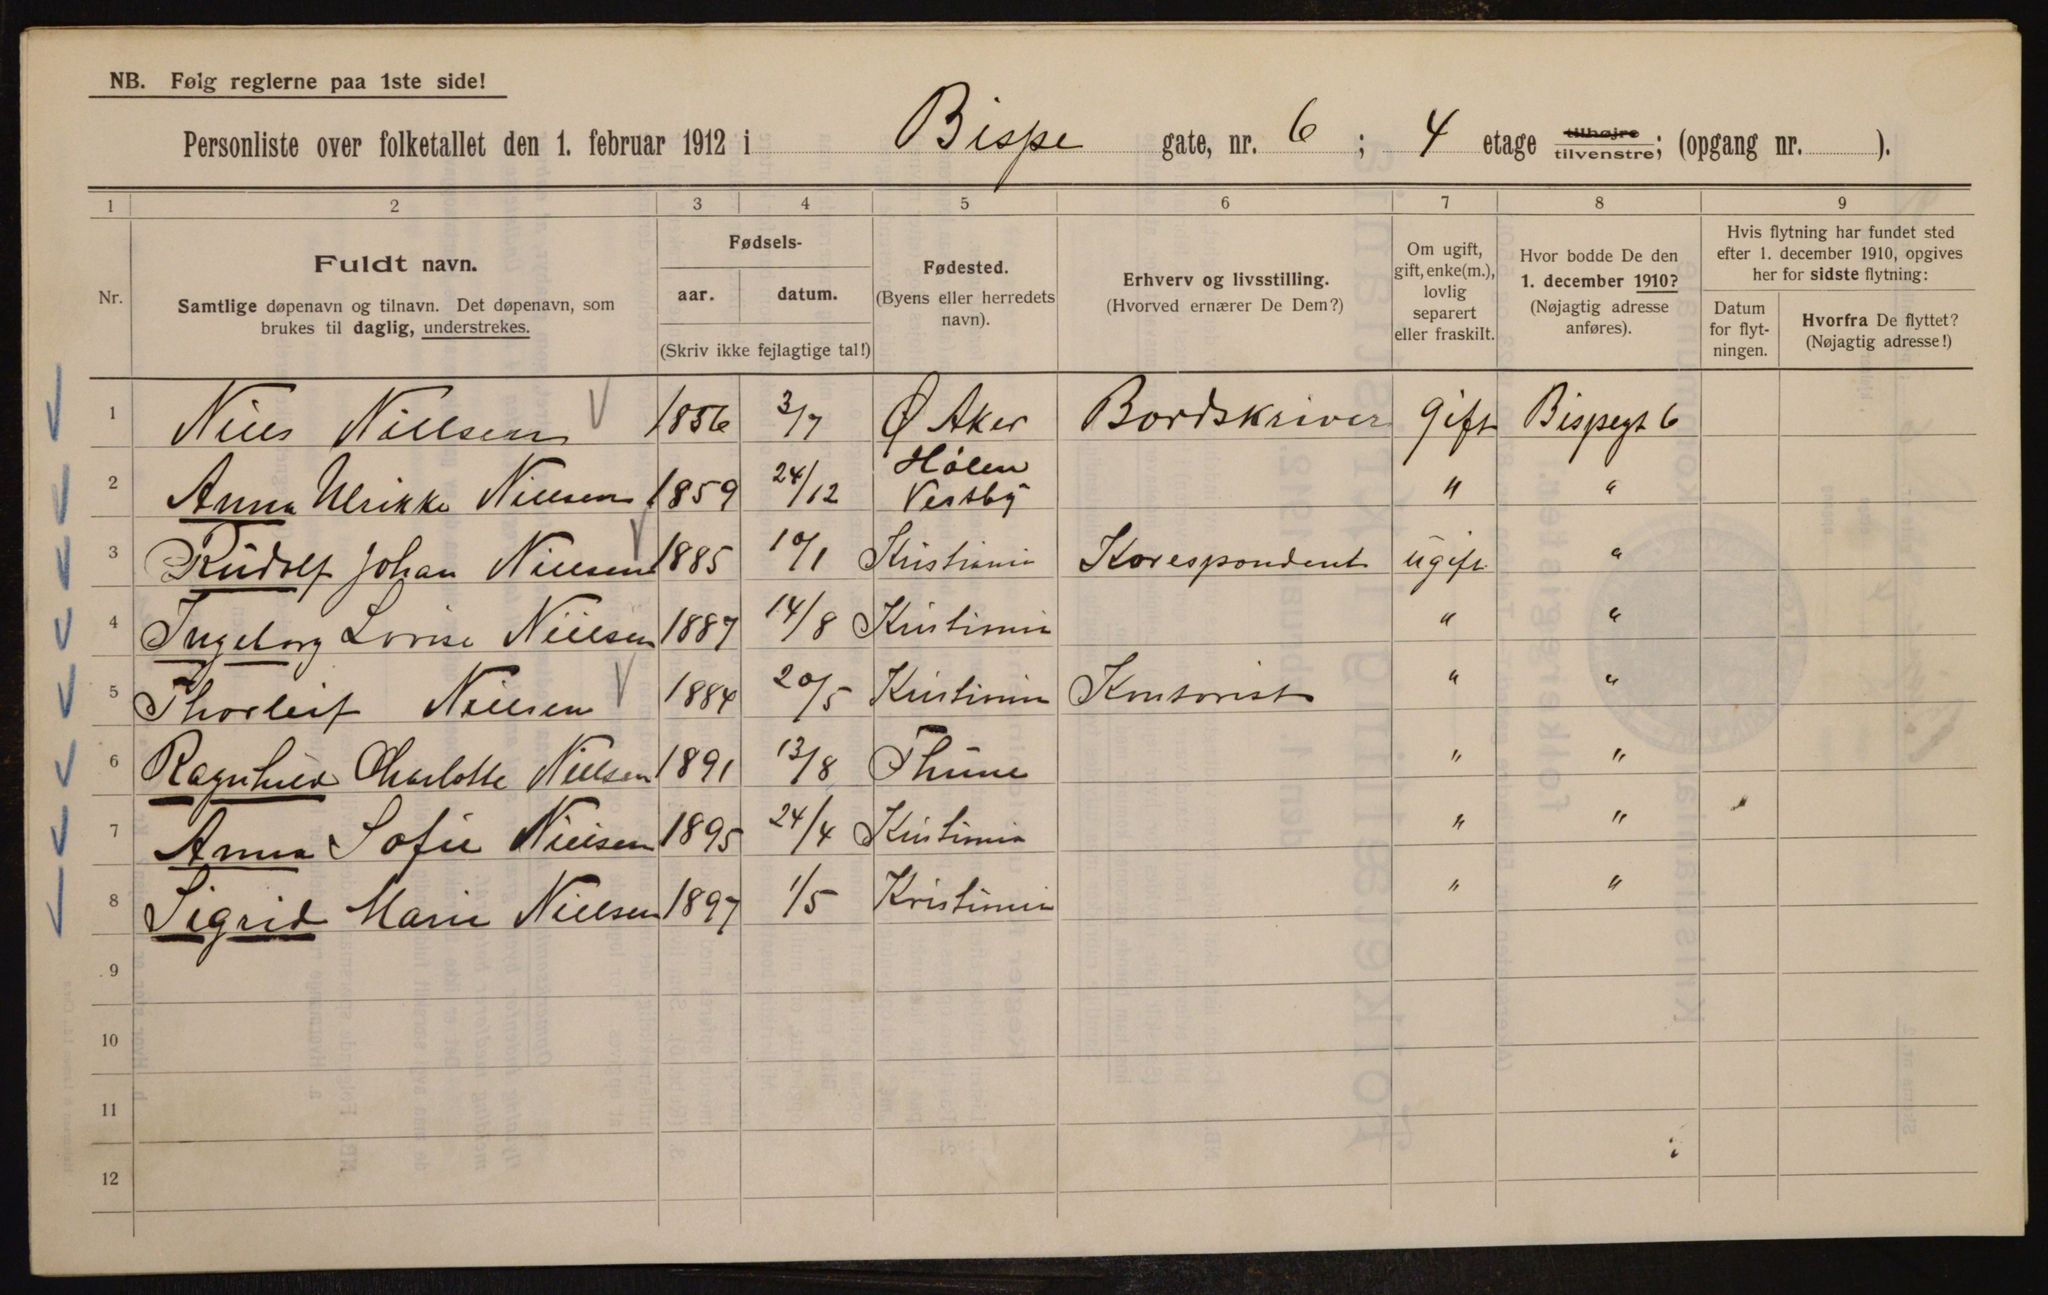 NB. Følg reglerne paa 1ste side!
Personliste over folketallet den 1. februar 1912 i Bispe gate, nr. 6 ; 4 etage tilhøjre tilvenstre; (opgang nr. ).
1 2 3 4 5 6 7 8 9
Nr.
Fuldt navn.
Samtlige døpenavn og tilnavn. Det døpenavn, som
brukes til daglig, understrekes.
Fødsels-
aar. datum.
(Skriv ikke fejlagtige tal!)
Fødested.
(Byens eller herredets
navn).
Erhverv og livsstilling.
(Hvorved ernærer De Dem?)
Om ugift,
gift, enke(m.),
lovlig
separert
eller fraskilt.
Hvor bodde De den
1. december 1910?
(Nøjagtig adresse
anføres).
Hvis flytning har fundet sted
efter 1. december 1910, opgives
her for sidste flytning:
Datum
for flyt-
ningen.
Hvorfra De flyttet?
(Nøjagtig adresse!)
1 Niels Nielsen 1856 3/7 Ø Aker Bordskriver gift Bispegt 6
2 Anna Ulrikke Nielsen 1859 24/12 Hølen Vestby " "
3 Rudolf Johan Nielsen 1885 10/1 Kristiania Korespondent ugift "
4 Ingeborg Lovise Nielsen 1887 14/8 Kristiania " "
5 Thorleif Nielsen 1884 20/5 Kristiania Kontorist " "
6 Ragnhild Charlotte Nielsen 1891 13/8 Thune " "
7 Anna Sofie Nielsen 1895 24/4 Kristiania " "
8 Sigrid Marie Nielsen 1897 1/5 Kristiania " "
9
10
11
12